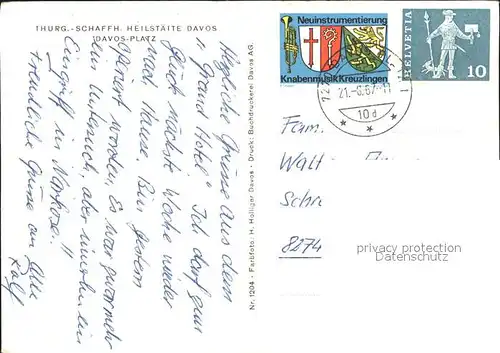 THURG.-SCHAFFH. HEILSTÄTTE DAVOS
DAVOS-PLATZ
Neuinstrumentierung
Knabenmusik Kreuzlingen
HELVETIA
10
21.-6.67
10d
Herzliche Grüsse aus dem
"Grand Hotel". Ich darf zum
Glück nächste Woche wieder
nach Hause. Bin gestern
operiert worden. Es war zwar mehr
ein Untersuch, aber immerhin ein
Eingriff in Narkose!!
Freundliche Grüsse an Alle
Ralf
Nr. 1204 - Farbfoto. H. Holliger Davos - Druck: Buchdruckerei Davos AG.
Fam.
Walt
Schr
8274
privacy protection
Datenschutz